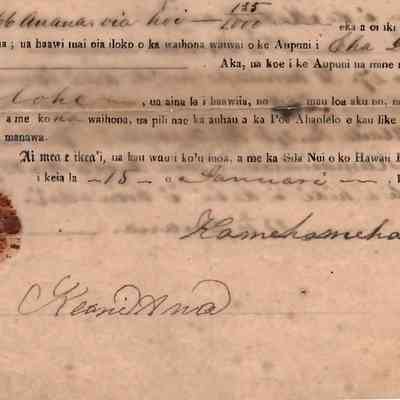 135
Ananavia koi — 1000 — eka a oi iki
ua ; ua haawi mai oia iloko o ka waihona waiwai o ke Aupuni i Eha
. Aka, ua koe i ke Aupuni na mine
, ua aina la i haawiia, no mau loa aku no, n
a me kona waihona, ua pili nae ka auhau a ka Poe Ahaolelo e kau like
manawa.
Ai mea e ikea'i, ua kau wau i ko'u inoa, a me ka Sila Nui o ko Hawaii
i keia la —15— o Januari —
Kamehameha
Keoni Ana